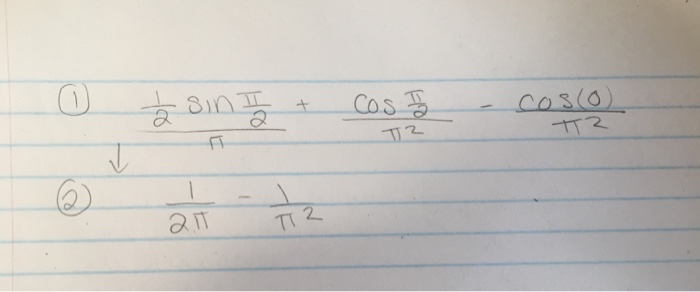 ① (1/2 sin π/2)/π + (cos π/2)/π² - cos(0)/π²
↓
② 1/2π - 1/π²